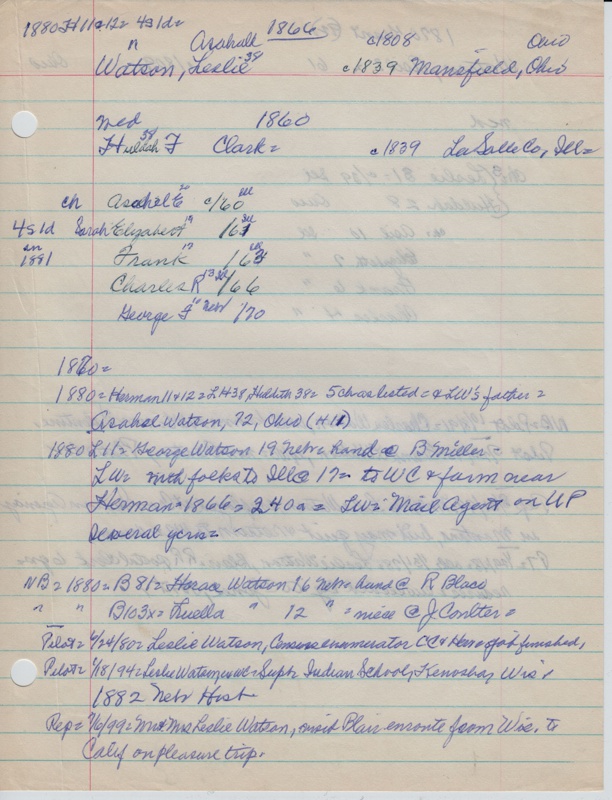 1880 H 11 & 12 = 4s1d =
1866
n Asahall c1808 Ohio
Watson, Leslie 38 c1839 Mansfield, Ohio
med 1860
Huldah 38 F Clark = c1839 LaSalle Co, Ill =
ch Asahel E 20 c/60 Ill
4s1d Sarah Elizabeth 19 /61 Ill
in 1881 Frank 17 /63 Ill
Charles R 13 Ill /66
George F 10 Nebr /70
1860 =
1880 = Herman 11 & 12 = L H 38, Huldith 38 = 5 ch as listed = & LW's father =
Asahel Watson, 72, Ohio (H11)
1880 L 11 = George Watson 19 Nebr = hand @ B Miller =
LW = with folks to Ill @ 17 = to WC & farm near
Herman = 1866 = 240a = LW = Mail Agent on UP
several years =
NB = 1880 = B 81 = Horace Watson 16 Nebr hand @ R Blaco
" " B103x = Luella " 12 " = niece @ J Coulter =
Pilot = 6/24/80 = Leslie Watson, Census enumerator CC & Herr job finished,
Pilot = 1/18/94 = Leslie Watson = Supt Indian School, Kenosha, Wis &
1882 Nebr Hist
Rep = 7/6/99 = Mr & Mrs Leslie Watson, visit Blair enroute from Wis. to
Calif on pleasure trip.